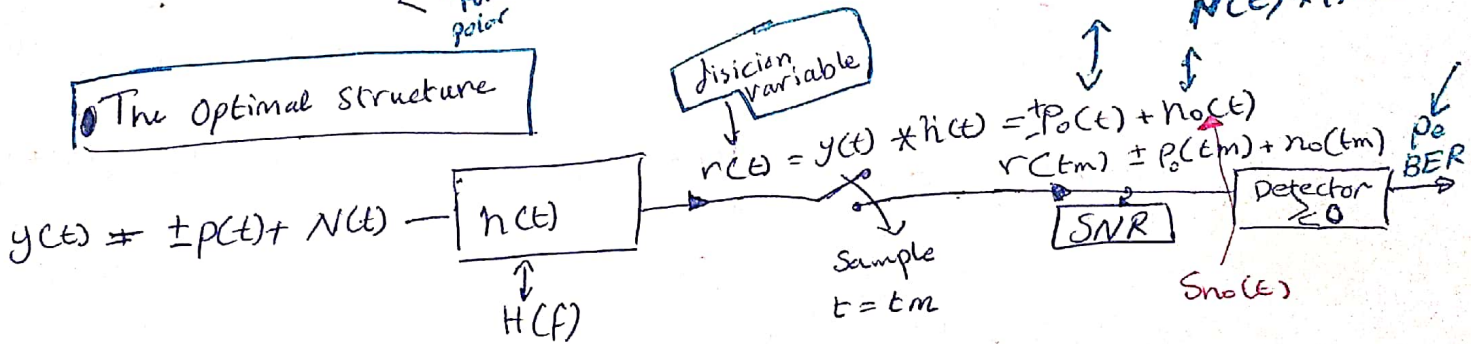 polar
N(t) *
• The Optimal Structure
disician
variable
r(t) = y(t) * h(t) = ±Po(t) + no(t)
r(tm) ± Po(tm) + no(tm)
Pe
BER
y(t) = ±p(t) + N(t)
h(t)
H(f)
Sample
t = tm
SNR
Detector
≷ 0
Sno(t)